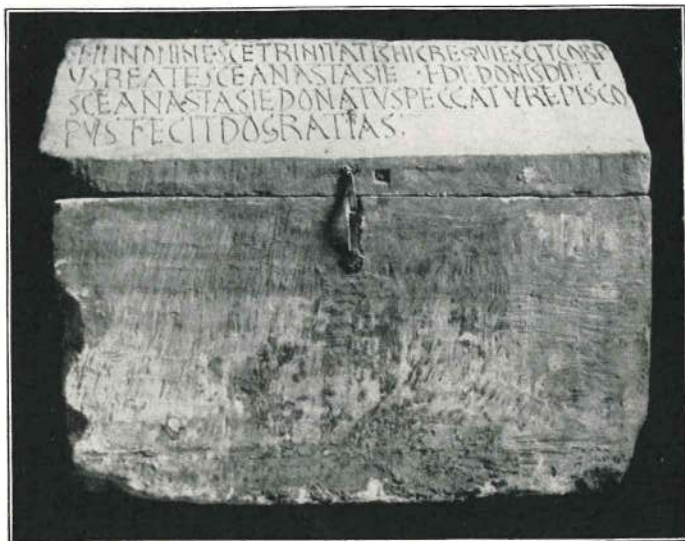 ✝ IN NOMINE SCE TRINITATIS HIC REQUIESCIT CORP
VS BEATE SCE ANASTASIE · DE DONIS DI ET
SCE ANASTASIE DONATVS PECCATVR EPISCO
PVS FECIT DO GRATIAS